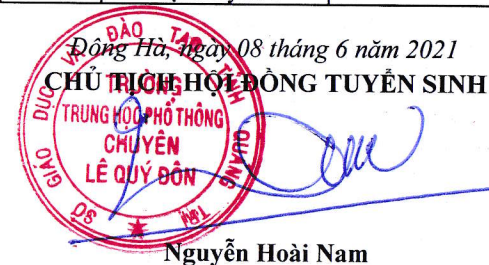 Đông Hà, ngày 08 tháng 6 năm 2021
CHỦ TỊCH HỘI ĐỒNG TUYỂN SINH
SỞ GIÁO DỤC VÀ ĐÀO TẠO TỈNH QUẢNG TRỊ
TRƯỜNG
TRUNG HỌC PHỔ THÔNG
CHUYÊN
LÊ QUÝ ĐÔN
Nguyễn Hoài Nam